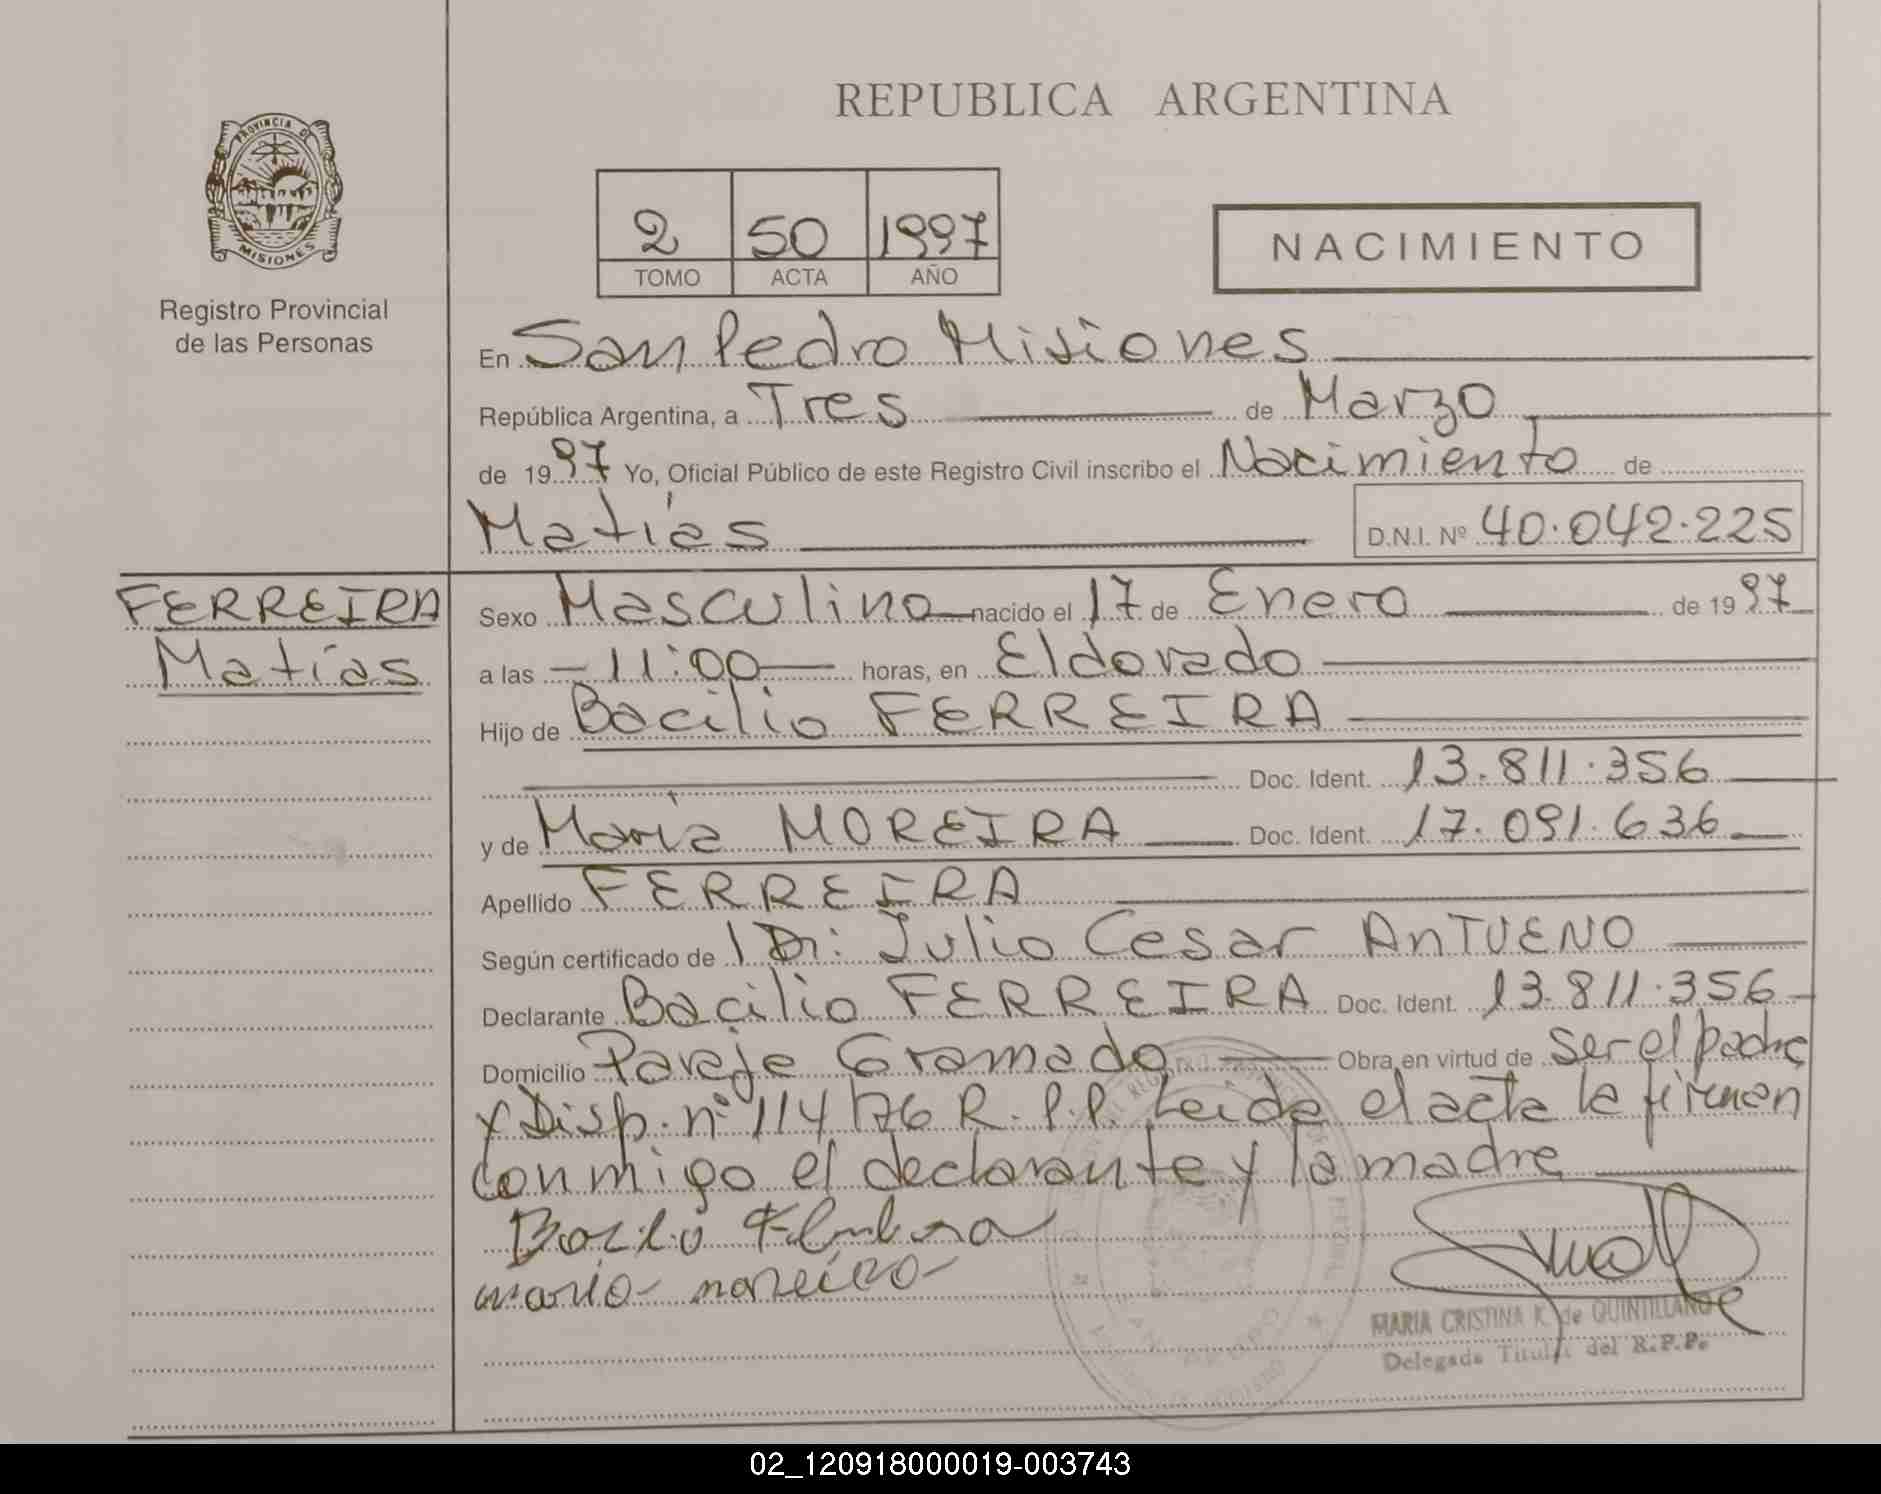 REPUBLICA ARGENTINA
PROVINCIA DE
MISIONES
Registro Provincial
de las Personas
2 50 1997
TOMO ACTA AÑO
NACIMIENTO
En San Pedro Misiones
República Argentina, a Tres de Marzo
de 1997 Yo, Oficial Público de este Registro Civil inscribo el Nacimiento de
Matías
D.N.I. Nº 40.042.225
FERREIRA
Matías
Sexo Masculino nacido el 17 de Enero de 1997
a las 11:00 horas, en Eldorado
Hijo de Bacilio FERREIRA
Doc. Ident. 13.811.356
y de María MOREIRA Doc. Ident. 17.091.636
Apellido FERREIRA
Según certificado de Dr: Julio Cesar AnTUENO
Declarante Bacilio FERREIRA Doc. Ident. 13.811.356
Domicilio Paraje Gramado Obra en virtud de ser el padre
y Disp. nº 114/76 R.P.P. Leida el acta la firman
conmigo el declarante y la madre
maria moreira
MARIA CRISTINA K. de QUINTILLANO
Delegada Titular del R.P.P.
02_120918000019-003743